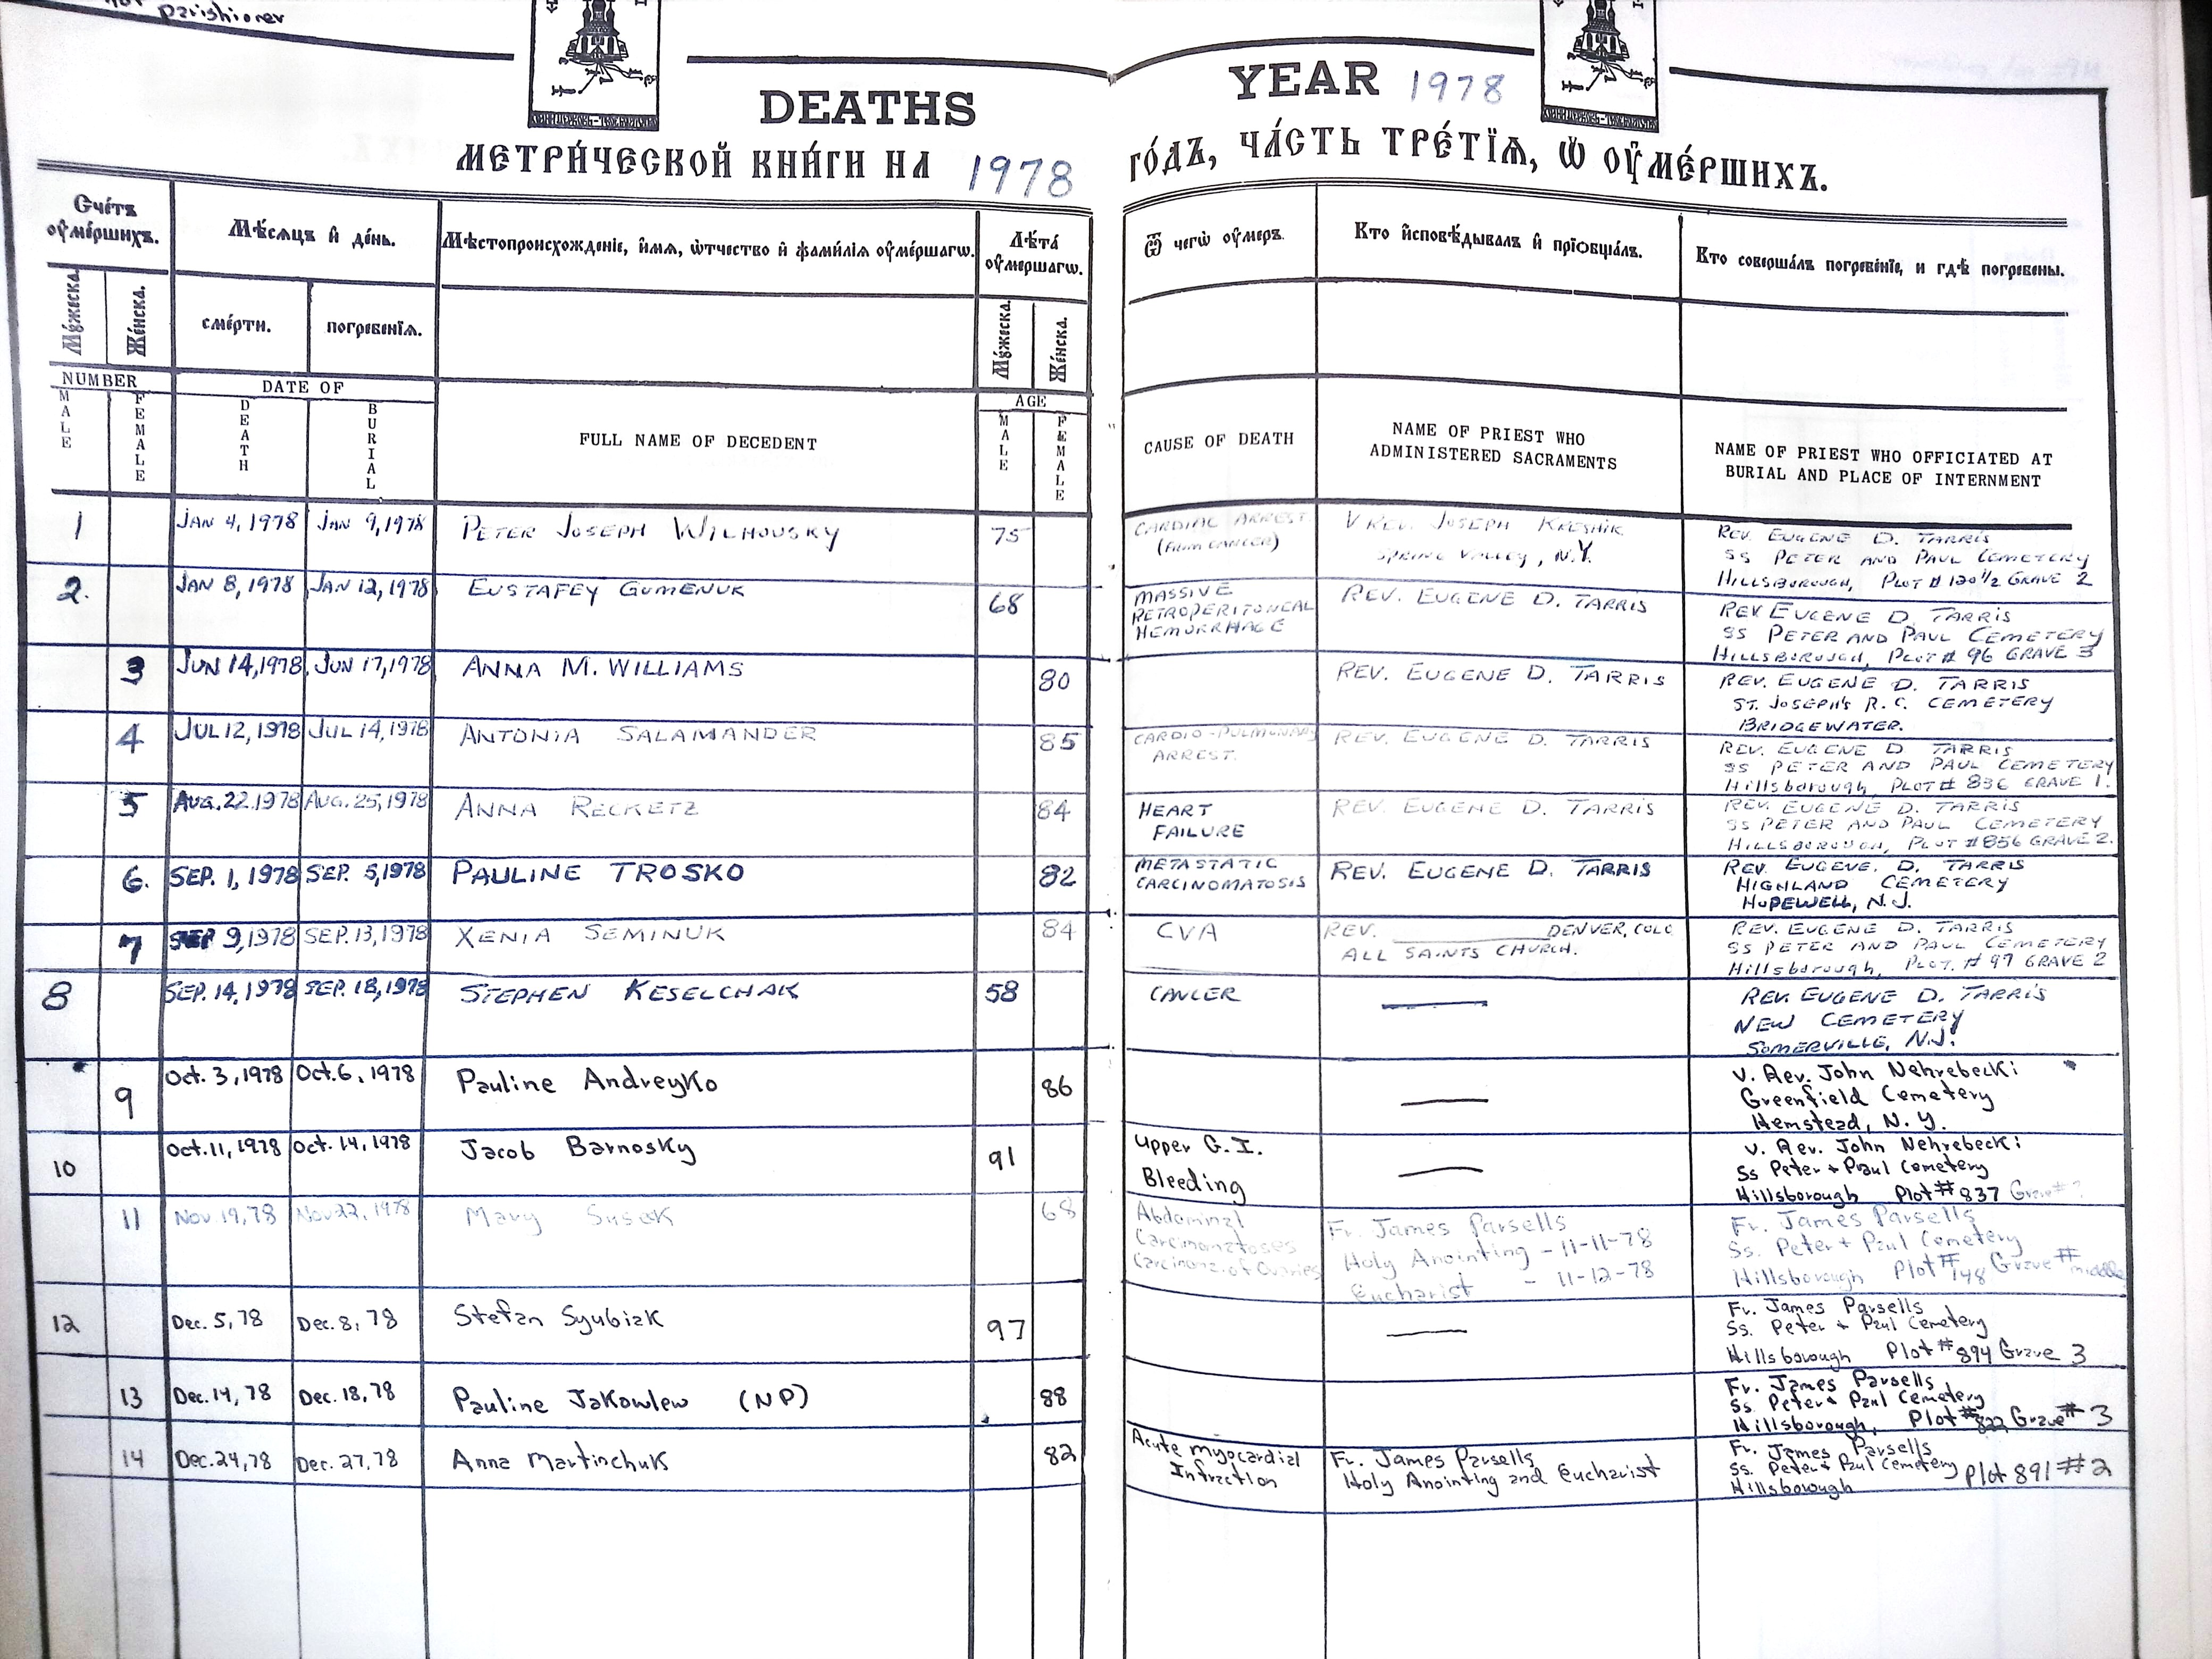 not parishioner
DEATHS
YEAR 1978
МЕТРИ́ЧЕСКОЙ КНИ́ГИ НА 1978
ГО́ДЪ, ЧА́СТЬ ТРЕ́ТЇѦ, Ѿ ОУ҆МЕ́РШИХЪ.
Счéтъ оу҆мéршихъ.
Мѣ́сѧцъ и҆ дéнь.
Мѣстопроисхождéнїе, и҆́мѧ, ѻ҆́тчество и҆ фамѝлїѧ оу҆мéршагѡ.
Лѣ́та оу҆мéршагѡ.
Ѿ чегѡ̀ оу҆мéръ.
Кто и҆сповѣ́дывалъ и҆ прїѻбща́лъ.
Кто соверша́лъ погребéнїе, и гдѣ̀ погребены.
Му́жеска.
Же́нска.
смéрти.
погребéнїѧ.
Му́жеска.
Же́нска.
NUMBER
DATE OF
AGE
MALE
FEMALE
DEATH
BURIAL
FULL NAME OF DECEDENT
MALE
FEMALE
CAUSE OF DEATH
NAME OF PRIEST WHO
ADMINISTERED SACRAMENTS
NAME OF PRIEST WHO OFFICIATED AT
BURIAL AND PLACE OF INTERNMENT
1 JAN 4, 1978 JAN 9, 1978 PETER JOSEPH WILHOUSKY 75
CARDIAC ARREST
(FROM CANCER)
V REV. JOSEPH KRESHIK
SPRING VALLEY, N.Y.
REV. EUGENE D. TARRIS
SS PETER AND PAUL CEMETERY
HILLSBOROUGH, PLOT # 120 1/2 GRAVE 2
2. JAN 8, 1978 JAN 12, 1978 EUSTAFEY GUMENUK 68
MASSIVE
RETROPERITONEAL
HEMORRHAGE
REV. EUGENE D. TARRIS
REV EUGENE D. TARRIS
SS PETER AND PAUL CEMETERY
HILLSBOROUGH, PLOT # 96 GRAVE 3
3 JUN 14, 1978 JUN 17, 1978 ANNA M. WILLIAMS 80
REV. EUGENE D. TARRIS
REV. EUGENE D. TARRIS
ST. JOSEPH'S R.C. CEMETERY
BRIDGEWATER.
4 JUL 12, 1978 JUL 14, 1978 ANTONIA SALAMANDER 85
CARDIO-PULMONARY
ARREST.
REV. EUGENE D. TARRIS
REV. EUGENE D TARRIS
SS PETER AND PAUL CEMETERY
Hillsborough, PLOT # 836 GRAVE 1.
5 AUG. 22. 1978 AUG. 25, 1978 ANNA RECKETZ 84
HEART
FAILURE
REV. EUGENE D. TARRIS
REV. EUGENE D. TARRIS
SS PETER AND PAUL CEMETERY
HILLSBOROUGH, PLOT # 856 GRAVE 2.
6. SEP. 1, 1978 SEP. 5, 1978 PAULINE TROSKO 82
METASTATIC
CARCINOMATOSIS
REV. EUGENE D. TARRIS
REV. EUGEVE. D. TARRIS
HIGHLAND CEMETERY
HOPEWELL, N.J.
7 SEP 9, 1978 SEP. 13, 1978 XENIA SEMINUK 84
CVA
REV. DENVER, COLO
ALL SAINTS CHURCH.
REV. EUGENE D. TARRIS
SS PETER AND PAUL CEMETERY
Hillsborough, PLOT. # 97 GRAVE 2
8 SEP. 14, 1978 SEP. 18, 1978 STEPHEN KESELCHAK 58
CANCER
REV. EUGENE D. TARRIS
NEW CEMETERY
SOMERVILLE, N.J.
9 Oct. 3, 1978 Oct. 6, 1978 Pauline Andreyko 86
V. Rev. John Nehrebecki
Greenfield Cemetery
Hemstead, N.Y.
10 Oct. 11, 1978 Oct. 14, 1978 Jacob Barnosky 91
Upper G.I.
Bleeding
V. Rev. John Nehrebecki
Ss Peter + Paul Cemetery
Hillsborough Plot # 837 Grave #
11 Nov. 19, 78 Nov 22, 1978 Mary Susek 68
Abdominal
Carcinomatoses
Carcinoma of Ovaries
Fr. James Parsells
Holy Anointing - 11-11-78
Eucharist - 11-12-78
Fr. James Parsells
Ss. Peter + Paul Cemetery
Hillsborough Plot # 148 Grave # middle
12 Dec. 5, 78 Dec. 8, 78 Stefan Syubiak 97
Fr. James Parsells
Ss. Peter + Paul Cemetery
Hillsborough Plot # 894 Grave 3
13 Dec. 14, 78 Dec. 18, 78 Pauline Jakowlew (NP) 88
Fr. James Parsells
Ss. Peter + Paul Cemetery
Hillsborough, Plot # 822 Grave # 3
14 Dec. 24, 78 Dec. 27, 78 Anna Martinchuk 82
Acute Myocardial
Infraction
Fr. James Parsells
Holy Anointing and Eucharist
Fr. James Parsells
Ss. Peter + Paul Cemetery Plot 891 # 2
Hillsborough